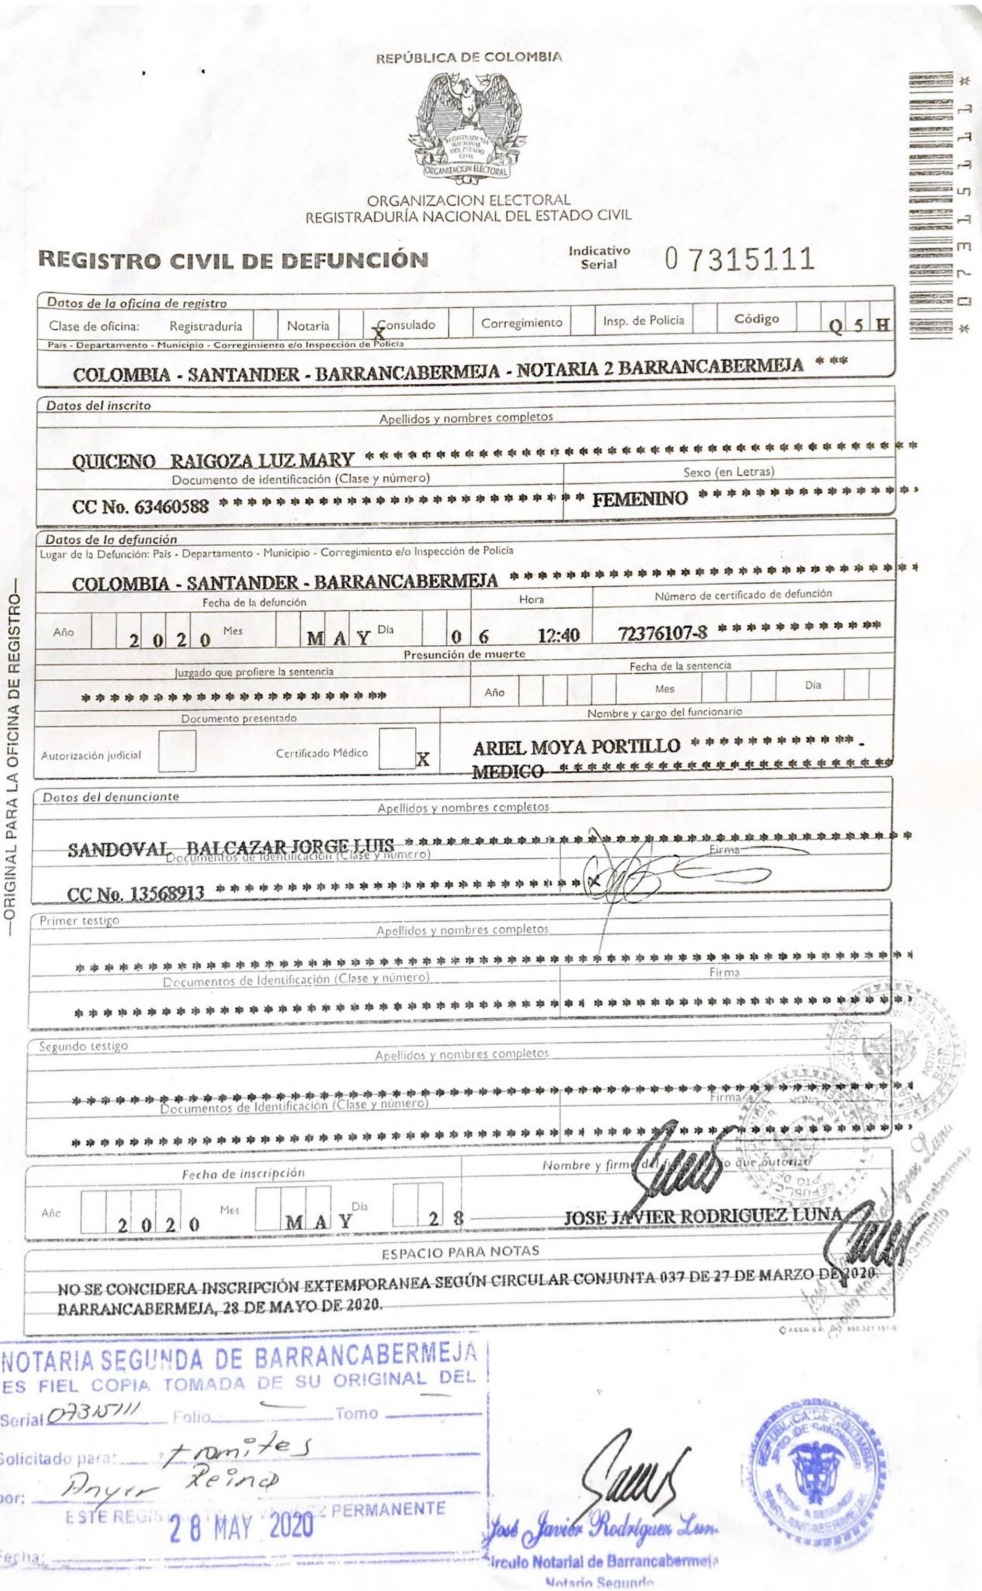 REPÚBLICA DE COLOMBIA
REGISTRADURIA
NACIONAL
DEL ESTADO
CIVIL
ORGANIZACION ELECTORAL
ORGANIZACION ELECTORAL
REGISTRADURÍA NACIONAL DEL ESTADO CIVIL
REGISTRO CIVIL DE DEFUNCIÓN
Indicativo Serial 07315111
* 07315111 *
Datos de la oficina de registro
Clase de oficina: Registraduría Notaría X Consulado Corregimiento Insp. de Policía Código Q 5 H
País - Departamento - Municipio - Corregimiento e/o Inspección de Policía
COLOMBIA - SANTANDER - BARRANCABERMEJA - NOTARIA 2 BARRANCABERMEJA ***
Datos del inscrito
Apellidos y nombres completos
QUICENO RAIGOZA LUZ MARY * * * * * * * * * * * * * * * * * * * * * * * * * * * * * * * * * * * * * * *
Documento de identificación (Clase y número) Sexo (en Letras)
CC No. 63460588 * * * * * * * * * * * * * * * * * * * * * * * * * * FEMENINO * * * * * * * * * * * * * * * *
Datos de la defunción
Lugar de la Defunción: País - Departamento - Municipio - Corregimiento e/o Inspección de Policía
COLOMBIA - SANTANDER - BARRANCABERMEJA * * * * * * * * * * * * * * * * * * * * * * * * * * * * *
Fecha de la defunción Hora Número de certificado de defunción
Año 2 0 2 0 Mes M A Y Día 0 6 12:40 72376107-8 * * * * * * * * * * * *
Presunción de muerte
Juzgado que profiere la sentencia Fecha de la sentencia
* * * * * * * * * * * * * * * * * * * * * Año Mes Día
Documento presentado Nombre y cargo del funcionario
Autorización judicial Certificado Médico X ARIEL MOYA PORTILLO * * * * * * * * * * * *.
MEDICO * * * * * * * * * * * * * * * * * * * * * * * *
Datos del denunciante
Apellidos y nombres completos
SANDOVAL BALCAZAR JORGE LUIS * * * * * * * * * * * * * * * * * * * * * * * * * * * * * * * * * * * *
Documentos de Identificación (Clase y número) Firma
CC No. 13568913 * * * * * * * * * * * * * * * * * * * * * * * * * * x
Primer testigo
Apellidos y nombres completos
* * * * * * * * * * * * * * * * * * * * * * * * * * * * * * * * * * * * * * * * * * * * * * * * * * * * * * * * * *
Documentos de Identificación (Clase y número) Firma
* * * * * * * * * * * * * * * * * * * * * * * * * * * * * * * * * * * * * * * * * * * * * * * * * * * * * * * * * *
Segundo testigo
Apellidos y nombres completos
* * * * * * * * * * * * * * * * * * * * * * * * * * * * * * * * * * * * * * * * * * * * * * * * * * * * * * * * * *
Documentos de Identificación (Clase y número) Firma
* * * * * * * * * * * * * * * * * * * * * * * * * * * * * * * * * * * * * * * * * * * * * * * * * * * * * * * * * *
Fecha de inscripción Nombre y firma del que autoriza
Año 2 0 2 0 Mes M A Y Día 2 8 JOSE JAVIER RODRIGUEZ LUNA
ESPACIO PARA NOTAS
NO SE CONCIDERA INSCRIPCIÓN EXTEMPORANEA SEGÚN CIRCULAR CONJUNTA 037 DE 27 DE MARZO DE 2020.
BARRANCABERMEJA, 28 DE MAYO DE 2020.
—ORIGINAL PARA LA OFICINA DE REGISTRO—
NOTARIA SEGUNDA DE BARRANCABERMEJA
ES FIEL COPIA TOMADA DE SU ORIGINAL DEL
Serial 07315111 Folio Tomo
Solicitado para: tramites
por: Reino
ESTE REGIS PERMANENTE
28 MAY 2020
Fecha:
José Javier Rodríguez Lun
írculo Notarial de Barrancabermeja
Notario Segundo
REPUBLICA DE COLOMBIA